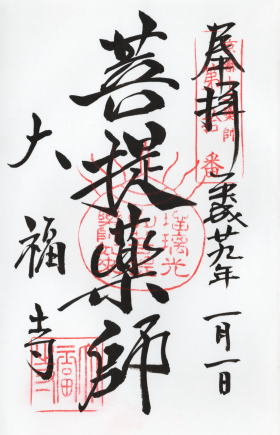 奉拝 平成廿九年 一月一日
菩提薬師
大福寺
瑠璃光